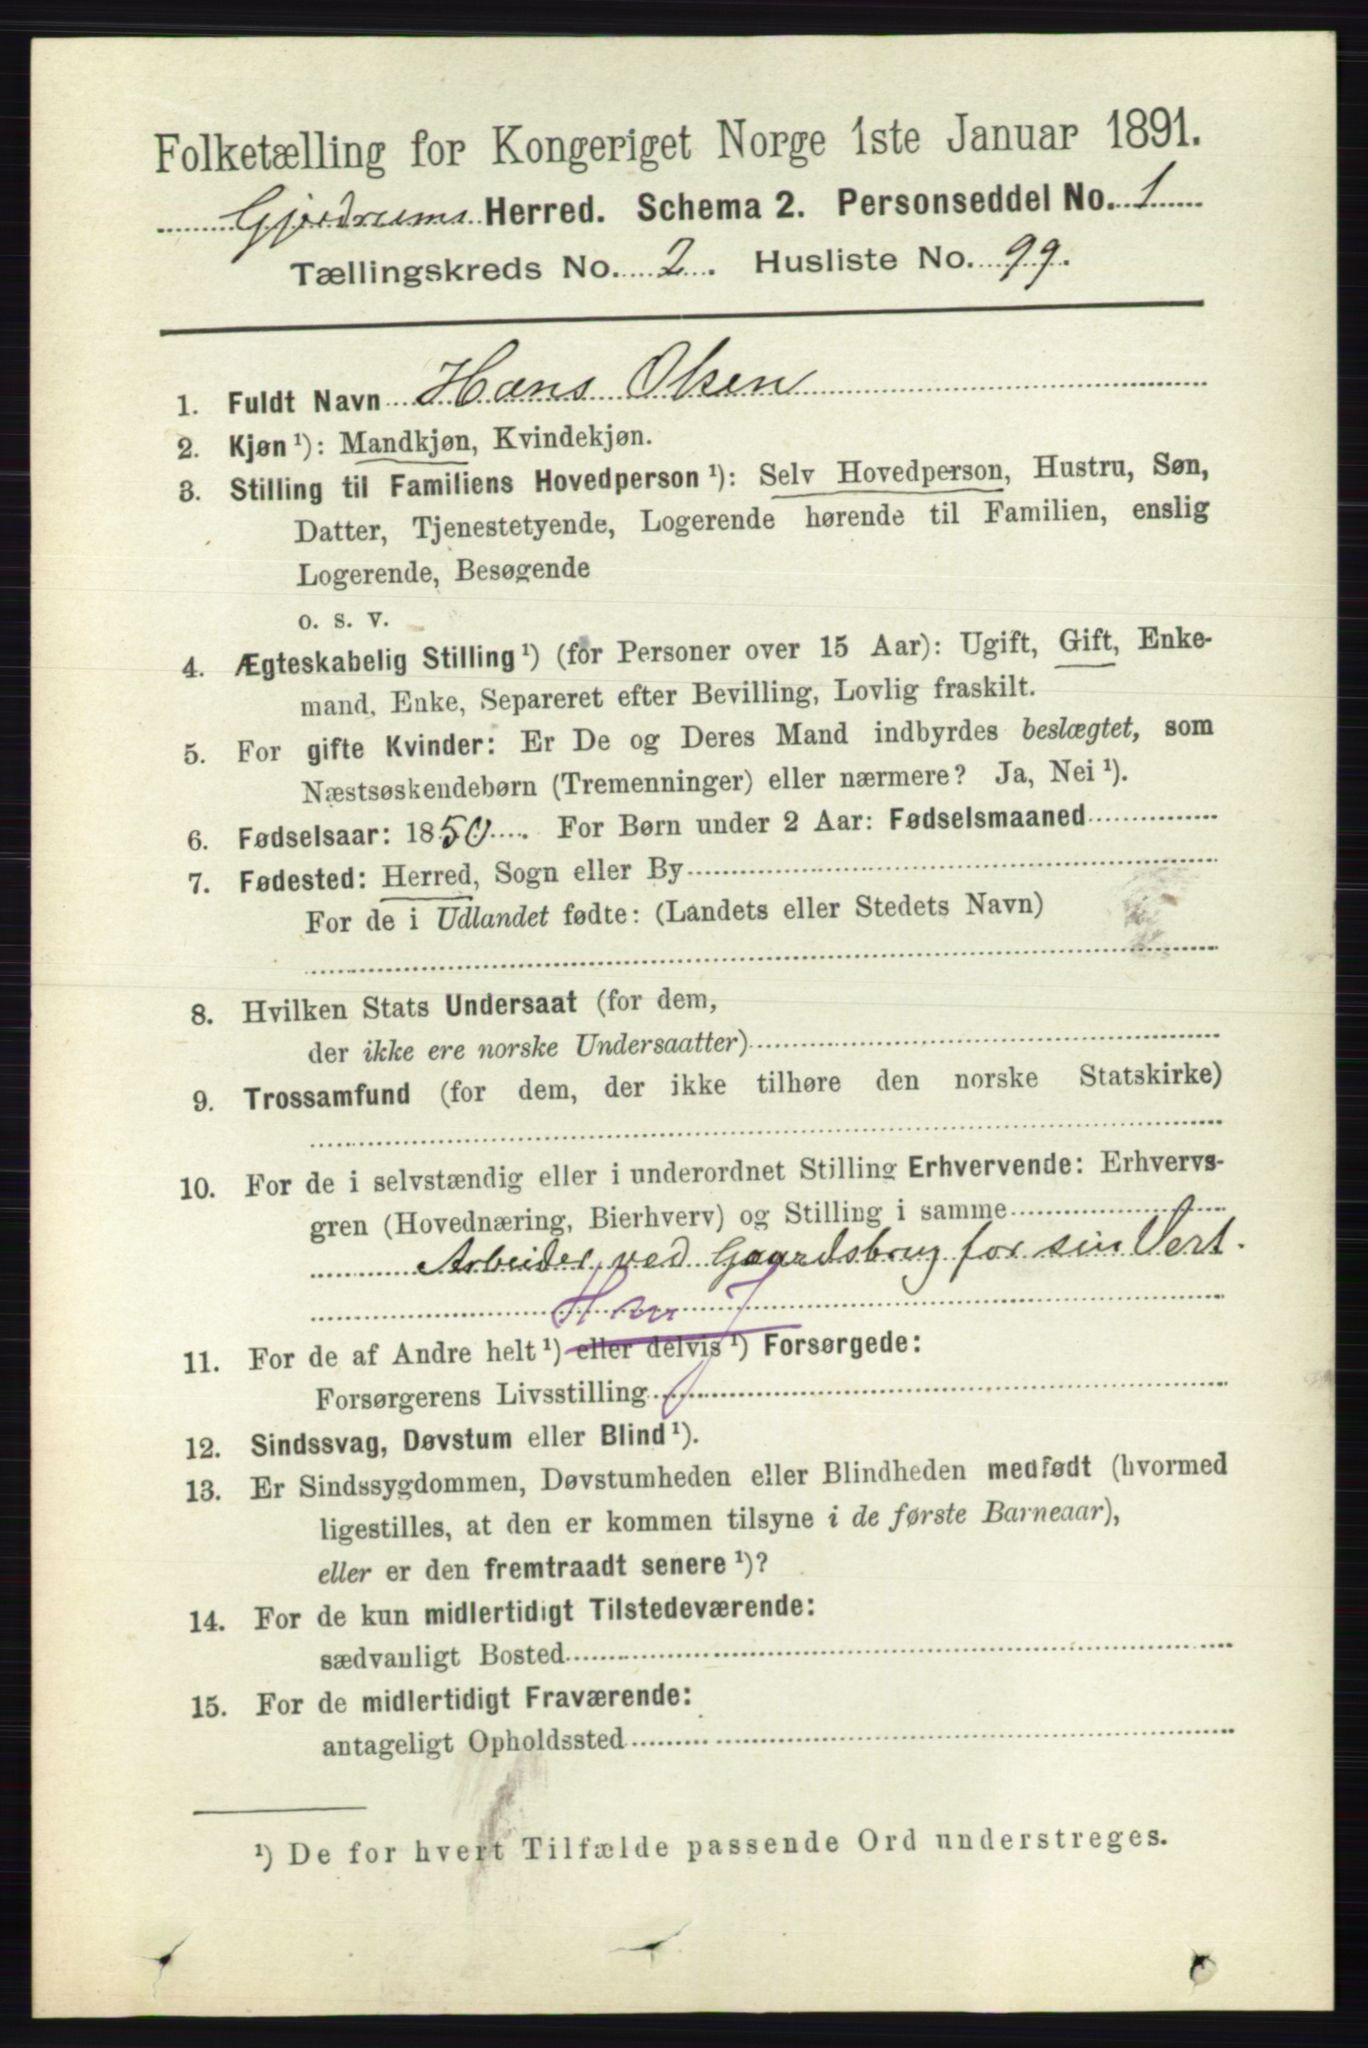 Folketælling for Kongeriget Norge 1ste Januar 1891.
Gjerdrums Herred. Schema 2. Personseddel No. 1
Tællingskreds No. 2. Husliste No. 99.
1. Fuldt Navn Hans Olsen
2. Kjøn¹): Mandkjøn, Kvindekjøn.
3. Stilling til Familiens Hovedperson¹): Selv Hovedperson, Hustru, Søn,
Datter, Tjenestetyende, Logerende hørende til Familien, enslig
Logerende, Besøgende
o. s. v.
4. Ægteskabelig Stilling¹) (for Personer over 15 Aar): Ugift, Gift, Enke-
mand, Enke, Separeret efter Bevilling, Lovlig fraskilt.
5. For gifte Kvinder: Er De og Deres Mand indbyrdes beslægtet, som
Næstsøskendebørn (Tremenninger) eller nærmere? Ja, Nei¹).
6. Fødselsaar: 1850. For Børn under 2 Aar: Fødselsmaaned
7. Fødested: Herred, Sogn eller By
For de i Udlandet fødte: (Landets eller Stedets Navn)
8. Hvilken Stats Undersaat (for dem,
der ikke ere norske Undersaatter)
9. Trossamfund (for dem, der ikke tilhøre den norske Statskirke)
10. For de i selvstændig eller i underordnet Stilling Erhvervende: Erhvervs-
gren (Hovednæring, Bierhverv) og Stilling i samme
Arbeider ved Gaardsbrug for sin Vert.
11. For de af Andre helt¹) eller delvis¹) Forsørgede:
Forsørgerens Livsstilling
12. Sindssvag, Døvstum eller Blind¹).
13. Er Sindssygdommen, Døvstumheden eller Blindheden medfødt (hvormed
ligestilles, at den er kommen tilsyne i de første Barneaar),
eller er den fremtraadt senere¹)?
14. For de kun midlertidigt Tilstedeværende:
sædvanligt Bosted
15. For de midlertidigt Fraværende:
antageligt Opholdssted
¹) De for hvert Tilfælde passende Ord understreges.